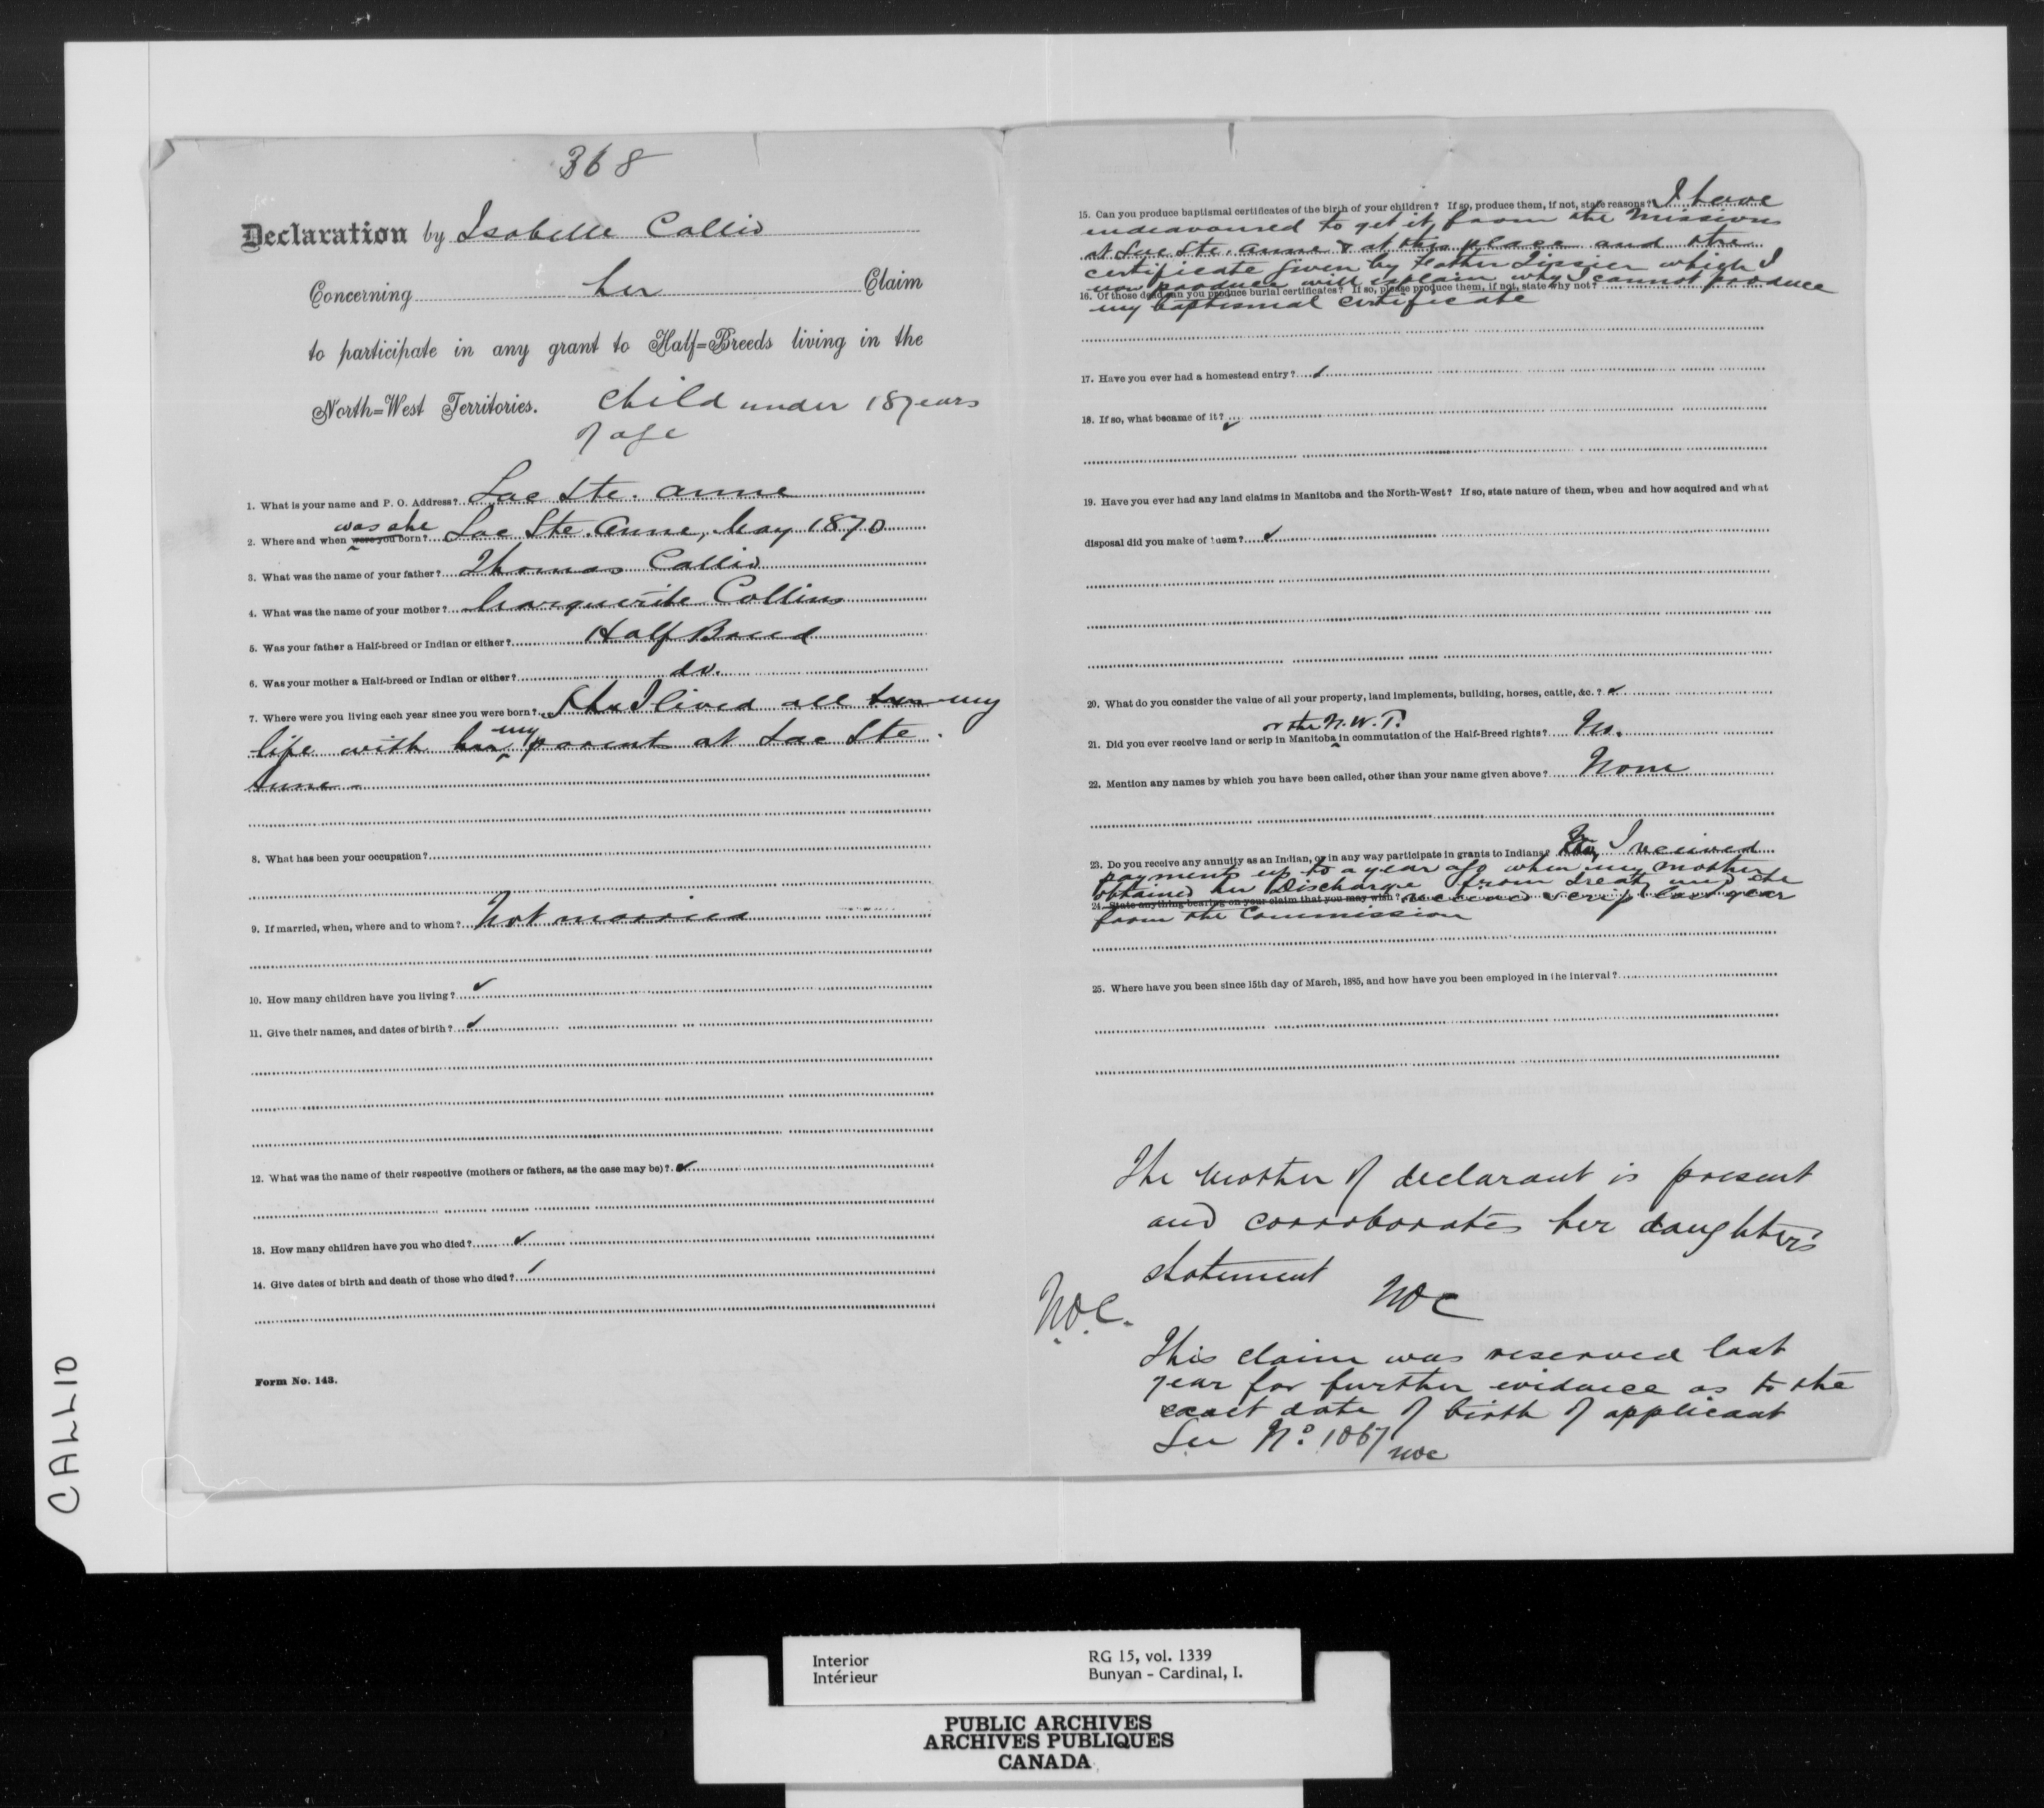 368
Declaration by Isabelle Callio
Concerning her Claim
to participate in any grant to Half=Breeds living in the
North=West Territories. Child under 18 years
of age
1. What is your name and P. O. Address? Lac Ste. Anne
was she
2. Where and when were you born? Lac Ste. Anne, May 1870
3. What was the name of your father? Thomas Callio
4. What was the name of your mother? Marguerite Collins
5. Was your father a Half-breed or Indian or either? Half Breed
6. Was your mother a Half-breed or Indian or either? do.
7. Where were you living each year since you were born? She I lived all her my
life with her my parents at Lac Ste.
Anne.
8. What has been your occupation?
9. If married, when, where and to whom? Not married
10. How many children have you living? ✓
11. Give their names, and dates of birth? ✓
12. What was the name of their respective (mothers or fathers, as the case may be)? ✓
13. How many children have you who died? ✓
14. Give dates of birth and death of those who died?
Form No. 143.
15. Can you produce baptismal certificates of the birth of your children? If so, produce them, if not, state reasons? I have
endeavoured to get it from the missions
at Lac Ste. Anne & at this place and the
certificate given by Father Tissier which I
now produce will explain why I cannot produce
16. Of those dead can you produce burial certificates? If so, please produce them, if not, state why not?
my baptismal certificate
17. Have you ever had a homestead entry? ✓
18. If so, what became of it? ✓
19. Have you ever had any land claims in Manitoba and the North-West? If so, state nature of them, when and how acquired and what
disposal did you make of them? ✓
20. What do you consider the value of all your property, land implements, building, horses, cattle, &c.? ✓
or the N.W.T.
21. Did you ever receive land or scrip in Manitoba in commutation of the Half-Breed rights? No.
22. Mention any names by which you have been called, other than your name given above? None
23. Do you receive any annuity as an Indian, or in any way participate in grants to Indians? I received
payments up to a year ago when my mother
obtained her Discharge from treaty and she
24. State anything bearing on your claim that you may wish? received scrip last year
from the Commission
25. Where have you been since 15th day of March, 1885, and how have you been employed in the interval?
The mother of declarant is present
and corroborates her daughter's
statement
NOC
N.O.C.
This claim was reserved last
year for further evidence as to the
exact date of birth of applicant
See No. 1067 NOC
CALLIO
Interior
Intérieur
RG 15, vol. 1339
Bunyan - Cardinal, I.
PUBLIC ARCHIVES
ARCHIVES PUBLIQUES
CANADA